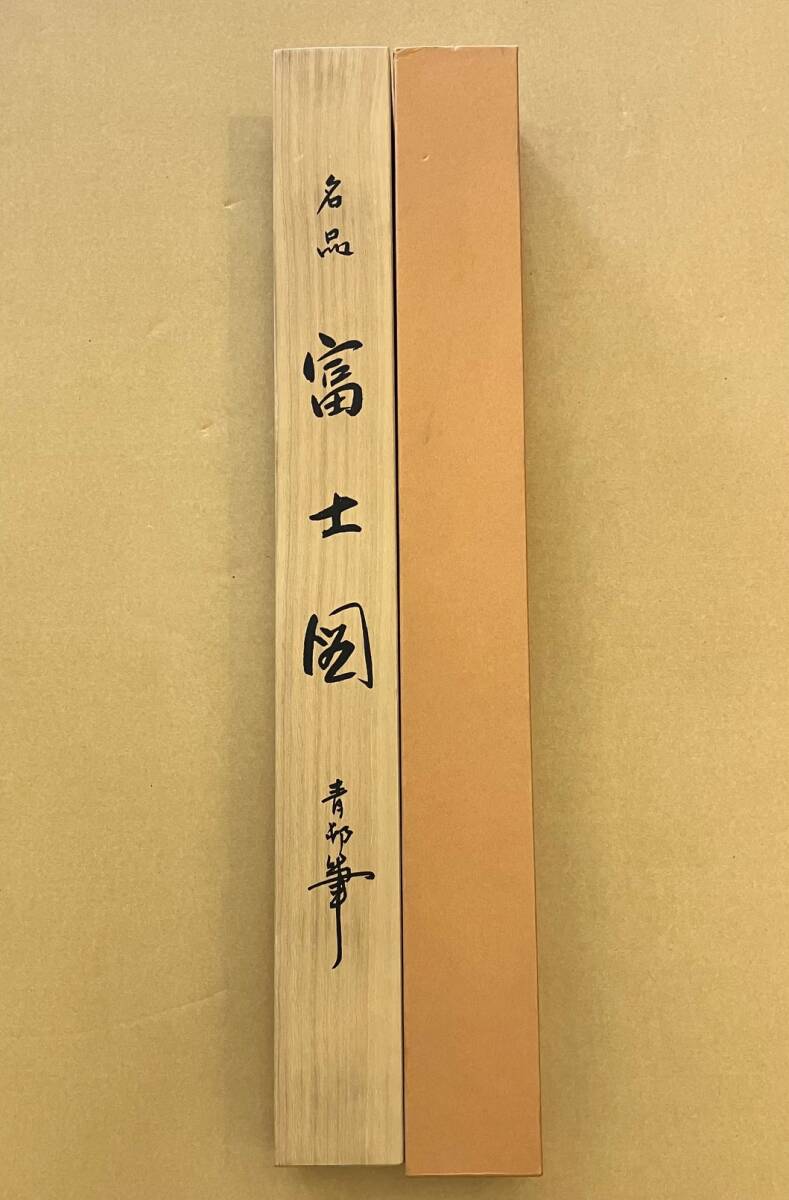 名品
富士図
青邨筆